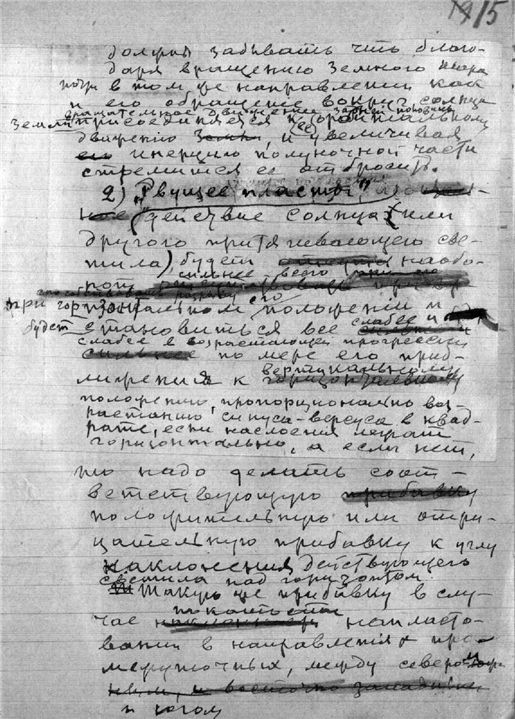 15
должны забывать что благо-
даря вращению земного шара
в том же направлении как
и его обращение вокруг солнца
вращательное движение
земли присоединяется к орбитальному
движению и увеличивая
ее инерцию полуночной части
стремится ее отбросить.
2) „Рвущее пласты"
действие солнца (или
другого притягивающего све-
тила) будет наобо-
рот сильнее всего
при горизонтальном его положении и
будет становиться все слабее и
слабее в возрастающей прогрессии
по мере его приб-
лижения к вертикальному
положению, пропорционально воз-
растанию синуса-версуса в квад-
рате, если наслоения лежат
горизонтально, а если нет,
то надо делать соот-
ветствующую прибавку
положительную или отри-
цательную прибавку к углу
наклонения действующего
светила над горизонтом.
Такую же прибавку в слу-
чае напласто-
вания в направлениях про-
межуточных, между северо
и югом